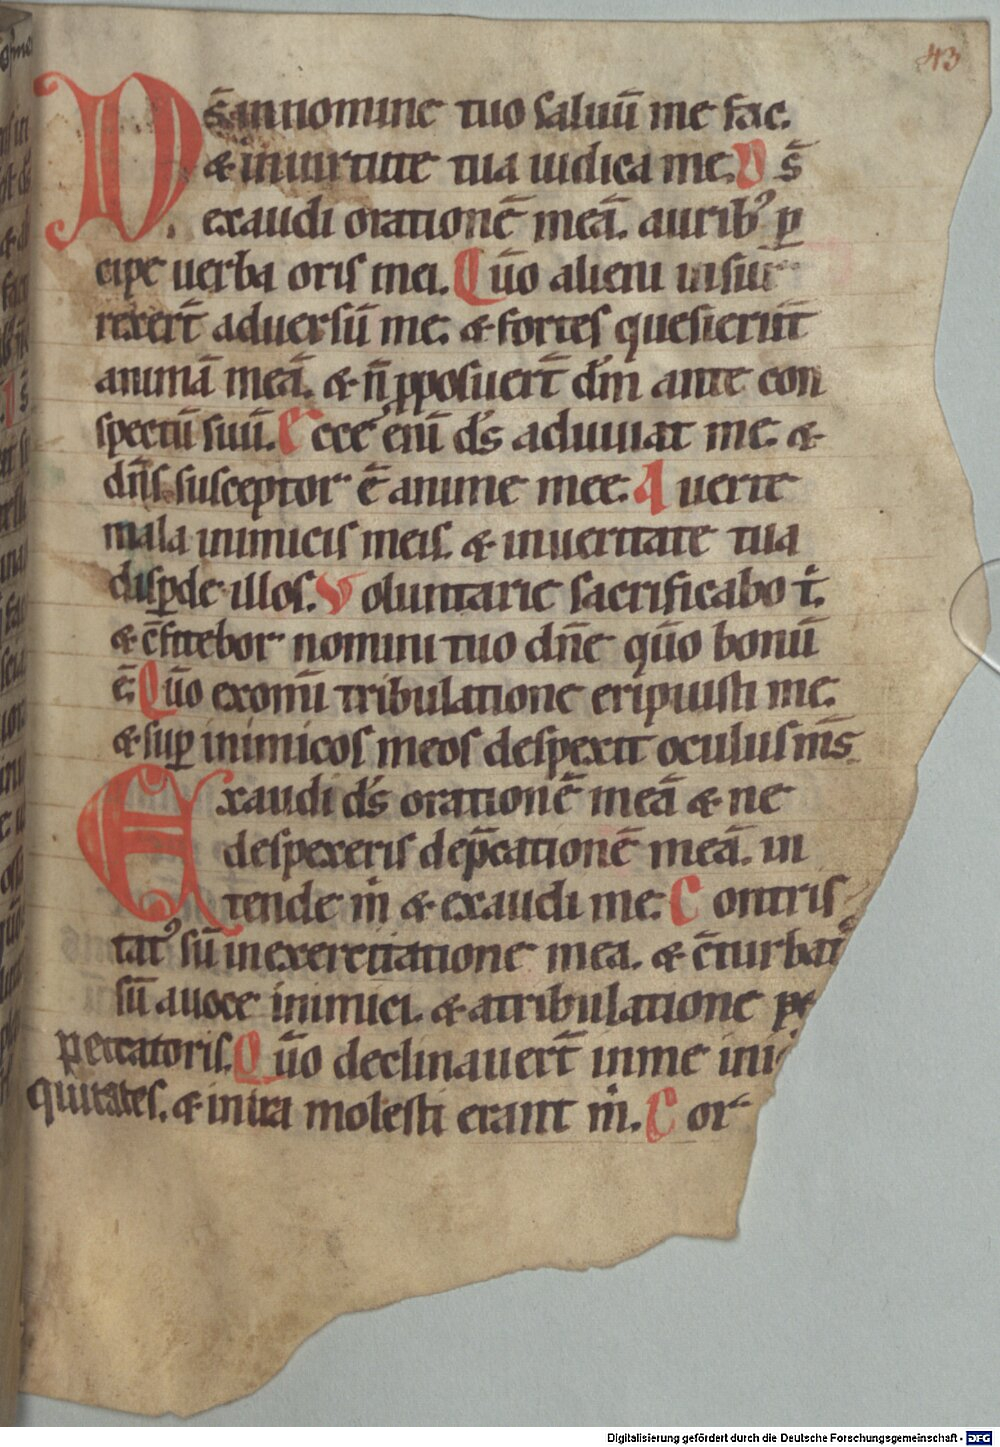 43
Ds̄ in nomine tuo saluū me fac.
& in uirtute tua iudica me. D s̄
exaudi orationē meā. aurib᾿ ꝑ
cipe uerba oris mei. Qūo alieni insur
rexer̄t aduersū me. & fortes quesierūt
animā meā. & n̄ ꝓposuer̄t dm̄ ante con
spectū suū. Ecce enī ds̄ adiuuat me. &
dn̄s susceptor ē anime mee. Auerte
mala inimicis meis. & in ueritate tua
disꝑde illos. Voluntarie sacrificabo t̄.
& c̄fitebor nomini tuo dn̄e qūo bonū
ē. Qūo ex om̄i tribulatione eripuisti me.
& suꝑ inimicos meos despexit oculus m̄s.
Exaudi ds̄ orationē meā & ne
despexeris dep̄cationē meā. in
tende m̄ & exaudi me. Contris
tat᾿ sū in exercitatione mea. & c̄turbat᾿
sū a uoce inimici. & a tribulatione pe
peccatoris. Qūo declinauer̄t in me ini
quitates. & in ira molesti erant m̄. Cor
Digitalisierung gefördert durch die Deutsche Forschungsgemeinschaft - DFG